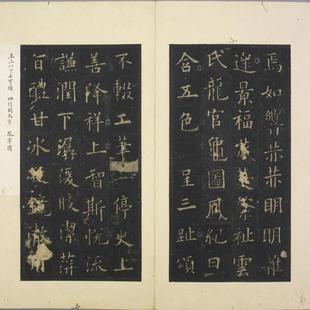 焉如響赫赫明明雜
遝景福葳蕤繁祉雲
氏龍官龜圖鳳紀日
含五色呈三趾頌
不輟工筆停史上
善降祥上智斯悅流
謙潤下潺湲皎潔蓱
旨醴甘冰凝鏡澈